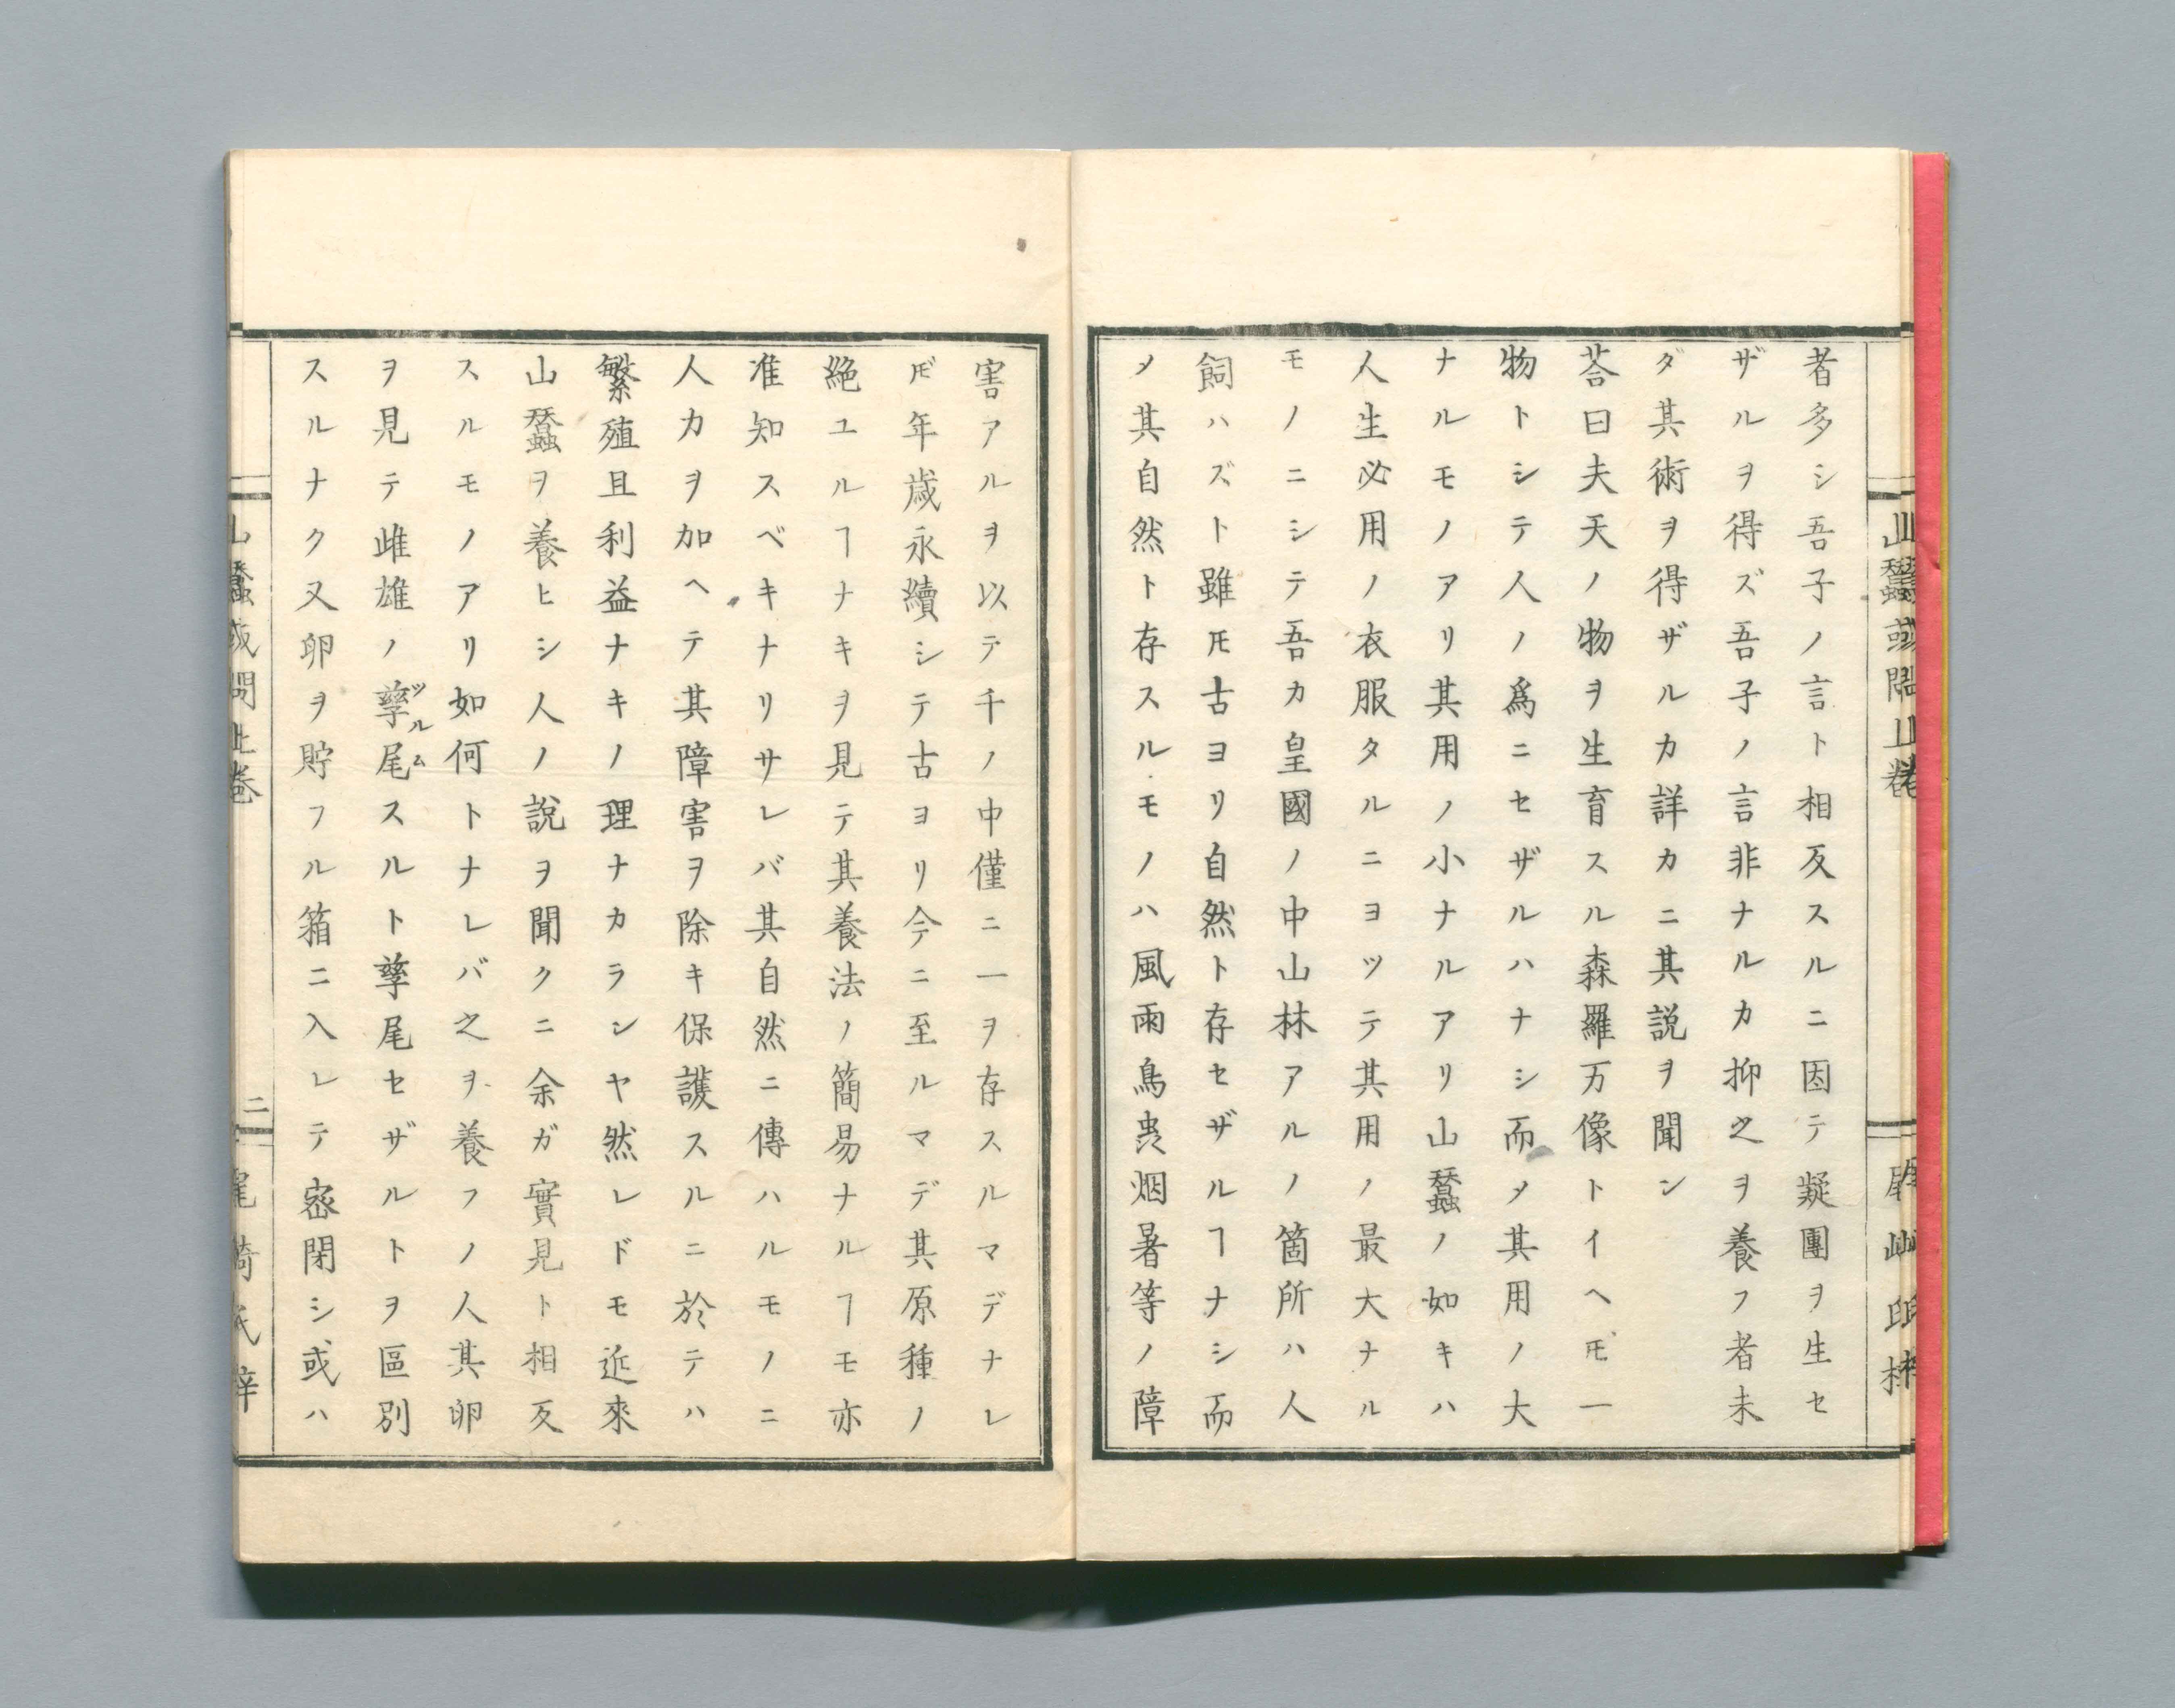 者多シ吾子ノ言ト相反スルニ因テ疑團ヲ生セ
ザルヲ得ズ吾子ノ言非ナルカ抑之ヲ養フ者未
ダ其術ヲ得ザルカ詳カニ其説ヲ聞ン
荅曰夫天ノ物ヲ生育スル森羅万像トイヘ𪜈一
物トシテ人ノ爲ニセザルハナシ而メ其用ノ大
ナルモノアリ其用ノ小ナルアリ山蠶ノ如キハ
人生必用ノ衣服タルニヨツテ其用ノ最大ナル
モノニシテ吾カ皇國ノ中山林アルノ箇所ハ人
飼ハズト雖𪜈古ヨリ自然ト存セザルヿナシ而
メ其自然ト存スルモノハ風雨鳥蟲烟暑等ノ障
害アルヲ以テ千ノ中僅ニ一ヲ存スルマデナレ
𪜈年歳永續シテ古ヨリ今ニ至ルマデ其原種ノ
絶ユルヿナキヲ見テ其養法ノ簡易ナルヿモ亦
准知スベキナリサレバ其自然ニ傳ハルモノニ
人力ヲ加ヘテ其障害ヲ除キ保護スルニ於テハ
繁殖且利益ナキノ理ナカランヤ然レドモ近來
山蠶ヲ養ヒシ人ノ説ヲ聞クニ余ガ實見ト相反
スルモノアリ如何トナレバ之ヲ養フノ人其卵
ヲ見テ雌雄ノ孳尾ツルムスルト孳尾セザルトヲ區別
スルナク又卵ヲ貯フル箱ニ入レテ密閉シ或ハ
山蠶或問上卷
二
尾崎氏梓